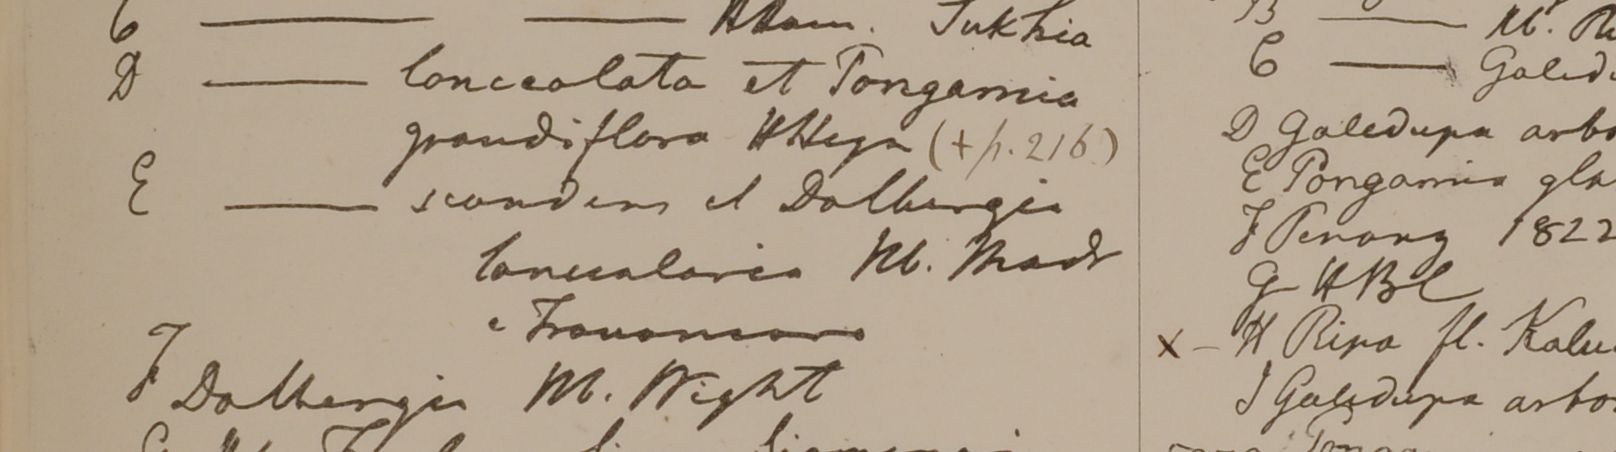 C ——— ——— HHam. Sukhia
D ——— lanceolata et Pongamia
grandiflora HHeyn (+ p. 216)
E ——— scandens et Dalbergia
lanceolaria Hb. Madr
e Travancore
F Dalbergia Hb. Wight
B ——— Hb.
C ——— Galed
D Galedupa arbo
E Pongamia gla
F Penang 1822
G HBC
x – H Ripa fl. Kalu
I Galedupa arbo